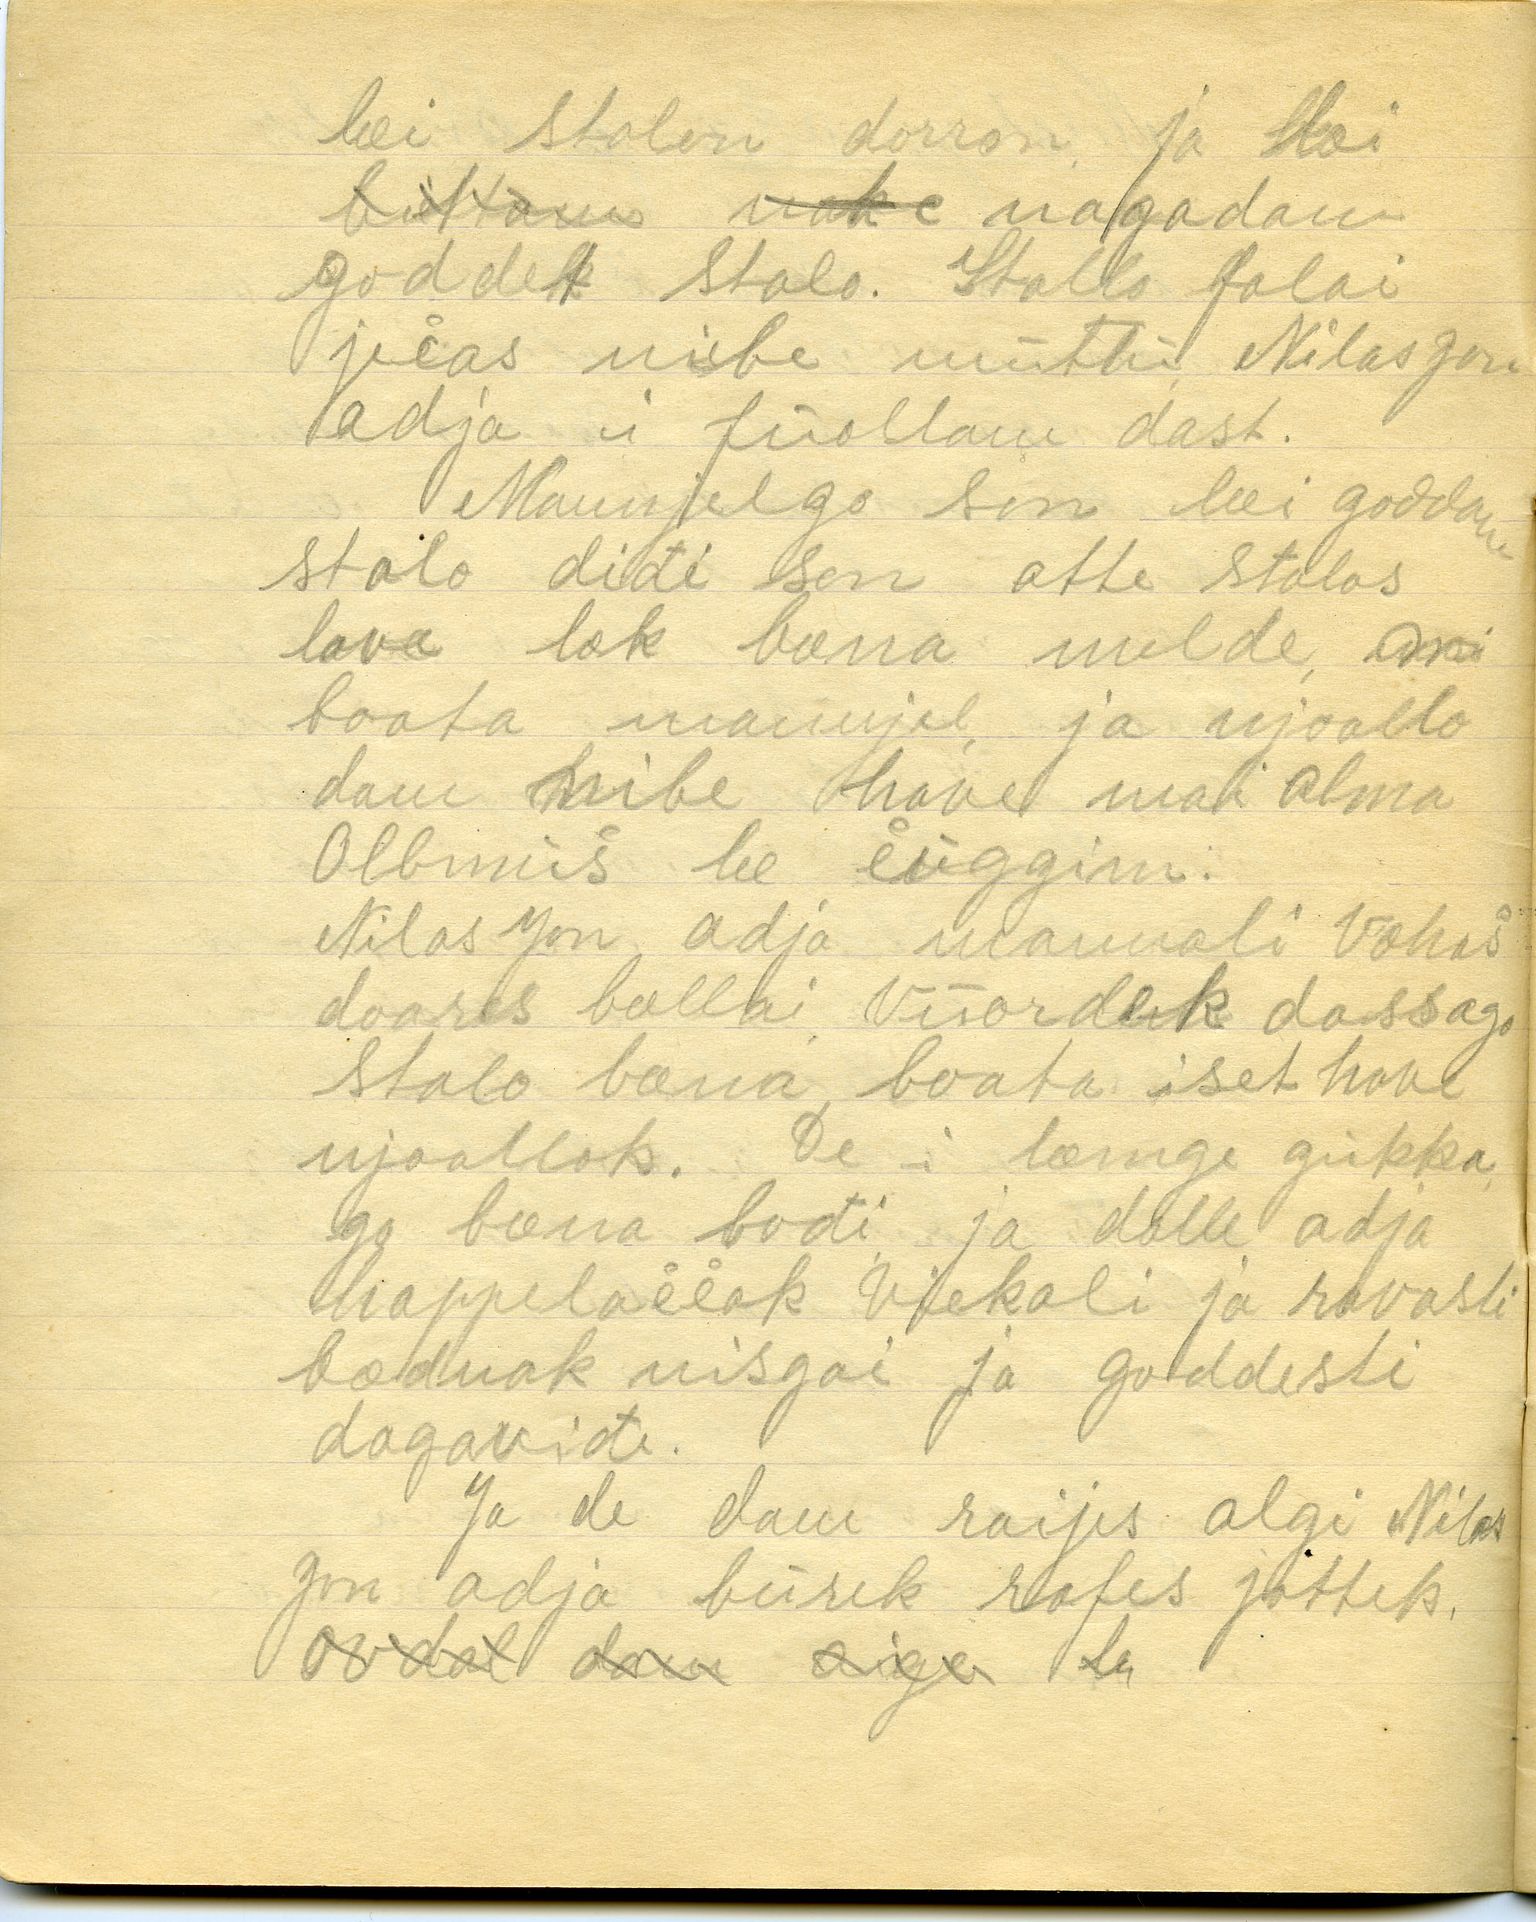 læi stalon dorron, ja læi
bittam nake nagadam
goddet Stalo. Stallo falai
ječas nisbe muttu, Nilasgon
adja i fuollam dast.
Maŋŋelgo son læi goddam
stalo dieđi son atte stalos
lava læk bæna melde, mi
boata maŋŋel, ja njoallo
dam nibe have mai alma
Olbmuš læ čuggim.
Nilas Jon adja mannali Vahaš
doares bællai, Vuordek dassago
Stalo bæna, boata iset have
njoallok. De i læmge gukka,
go bæna bođi, ja dalle adja
happelaččak Viekali ja ravasti
bædnak nisgai ja goddesti
dagaviđe.
Ja de dam raijes algi Nilas
Jon adja burek rafes jottek.
ovdal dam aige la